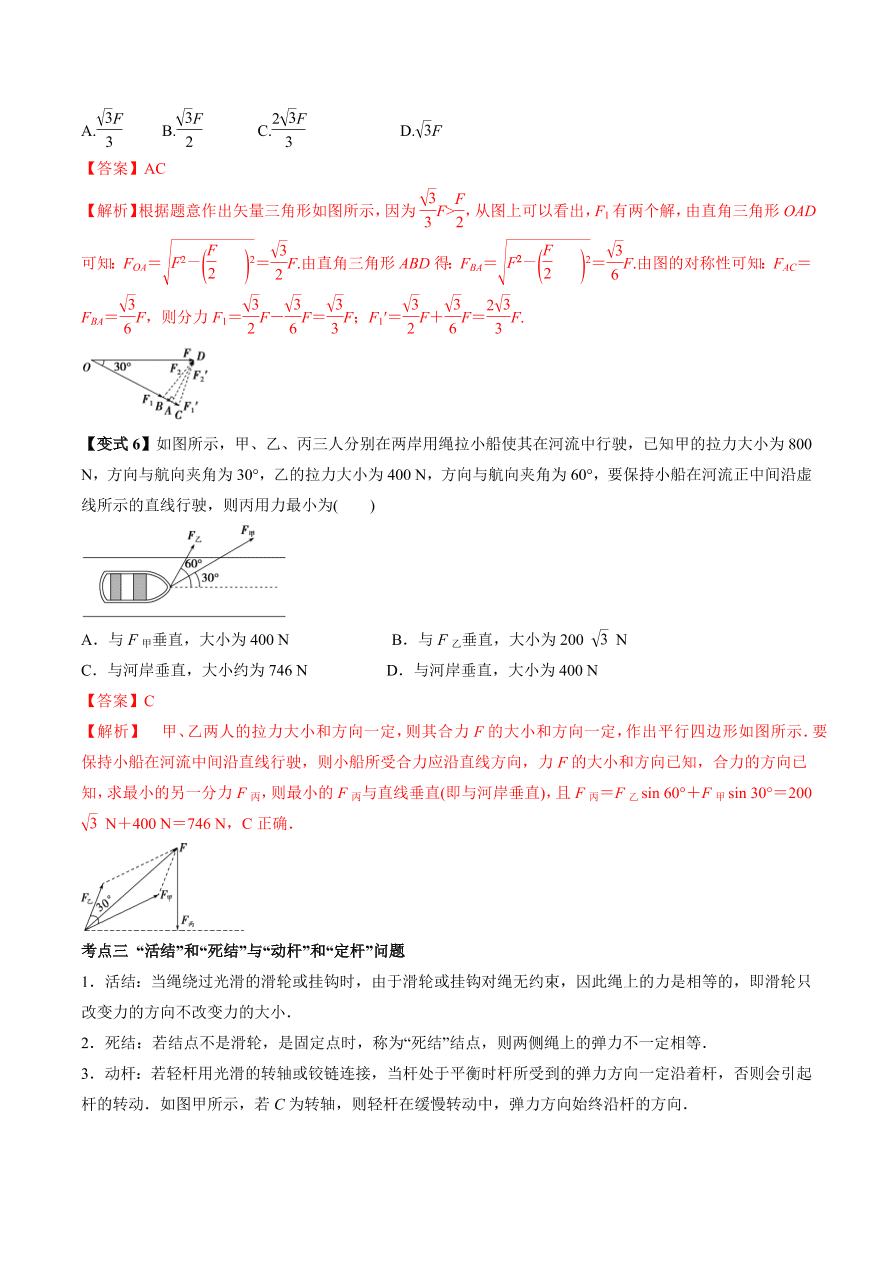 A.√3F/3 B.√3F/2 C.2√3F/3 D.√3F
【答案】AC
【解析】根据题意作出矢量三角形如图所示，因为√3/3F>F/2，从图上可以看出，F1有两个解，由直角三角形 OAD
可知：FOA＝√(F²－(F/2)²)＝√3/2F.由直角三角形 ABD 得：FBA＝√(F²－(F/2)²)＝√3/6F.由图的对称性可知：FAC＝
FBA＝√3/6F，则分力 F1＝√3/2F－√3/6F＝√3/3F；F1′＝√3/2F＋√3/6F＝2√3/3F.
O 30° F D
F2 F2′
F1 B A C F1′
【变式 6】如图所示，甲、乙、丙三人分别在两岸用绳拉小船使其在河流中行驶，已知甲的拉力大小为 800
N，方向与航向夹角为 30°，乙的拉力大小为 400 N，方向与航向夹角为 60°，要保持小船在河流正中间沿虚
线所示的直线行驶，则丙用力最小为( )
F乙 F甲
60°
30°
A．与 F 甲垂直，大小为 400 N B．与 F 乙垂直，大小为 200 √3 N
C．与河岸垂直，大小约为 746 N D．与河岸垂直，大小为 400 N
【答案】C
【解析】 甲、乙两人的拉力大小和方向一定，则其合力 F 的大小和方向一定，作出平行四边形如图所示．要
保持小船在河流中间沿直线行驶，则小船所受合力应沿直线方向，力 F 的大小和方向已知，合力的方向已
知，求最小的另一分力 F 丙，则最小的 F 丙与直线垂直(即与河岸垂直)，且 F 丙＝F 乙 sin 60°＋F 甲 sin 30°＝200
√3 N＋400 N＝746 N，C 正确．
F
F乙 30° F甲
F丙
考点三 “活结”和“死结”与“动杆”和“定杆”问题
1．活结：当绳绕过光滑的滑轮或挂钩时，由于滑轮或挂钩对绳无约束，因此绳上的力是相等的，即滑轮只
改变力的方向不改变力的大小．
2．死结：若结点不是滑轮，是固定点时，称为“死结”结点，则两侧绳上的弹力不一定相等．
3．动杆：若轻杆用光滑的转轴或铰链连接，当杆处于平衡时杆所受到的弹力方向一定沿着杆，否则会引起
杆的转动．如图甲所示，若 C 为转轴，则轻杆在缓慢转动中，弹力方向始终沿杆的方向．